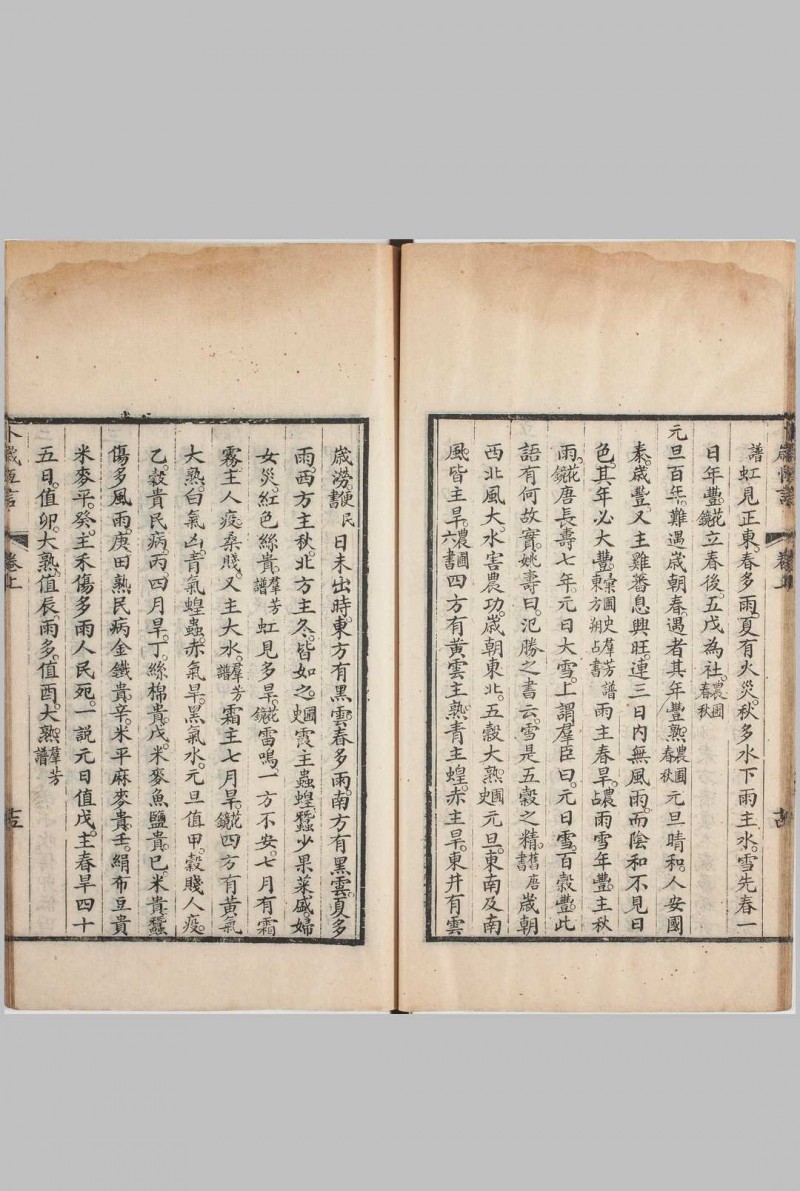 譜虹見正東。春多雨。夏有火災。秋多水下雨主水。雪先春一
日年豐。花鏡立春後。五戊為社。農圃春秋
元旦百年難遇歲朝春。遇者其年豐熟。農圃春秋元旦晴和。人安國
泰。歲豐。又主雞畜息興旺。連三日內無風雨。而陰和不見日
色。其年必大豐。彙圃史群芳譜東方朔占書雨主春旱。占農雨雪年豐。主秋
雨。花鏡唐長壽七年。元日大雪。上謂羣臣曰。元日雪。百穀豐。此
語有何故實。姚壽曰。氾勝之書云。雪是五穀之精。舊唐書歲朝
西北風大。水害農功。歲朝東北。五穀大熟。圃史元旦。東南及南
風皆主旱。農圃六書四方有黃雲主熟。青主蝗。赤主旱。東井有雲
歲澇。便民書日未出時。東方有黑雲。春多雨。南方有黑雲。夏多
雨。西方主秋。北方主冬。皆如之。圃史霞主蟲蝗。蠶少果菜盛婦
女災。紅色絲貴。群芳譜虹見多旱。花鏡雷鳴。一方不安。七月有霜
霧主人疫。桑賤。又主大水。群芳譜霜主七月旱。花鏡四方有黃氣
大熟。白氣凶。青氣蝗蟲。赤氣旱。黑氣水。元旦值甲。穀賤人疫。
乙。穀貴民病。丙。四月旱。丁。絲棉貴。戊。米麥魚鹽貴。巳。米貴蠶
傷多風雨。庚。田熟民病金鐵貴。辛。米平麻麥貴。壬。絹布豆貴
米麥平。癸。主禾傷多雨人民死。一說元日值戊。主春旱四十
五日。值卯。大熟。值辰。雨多。值酉。大熟。群芳譜
卷上